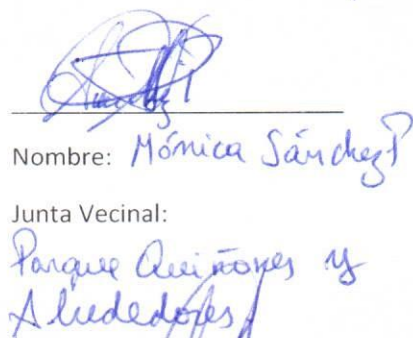 Nombre: Mónica Sánchez P
Junta Vecinal:
Parque Quiñones y
Alrededores